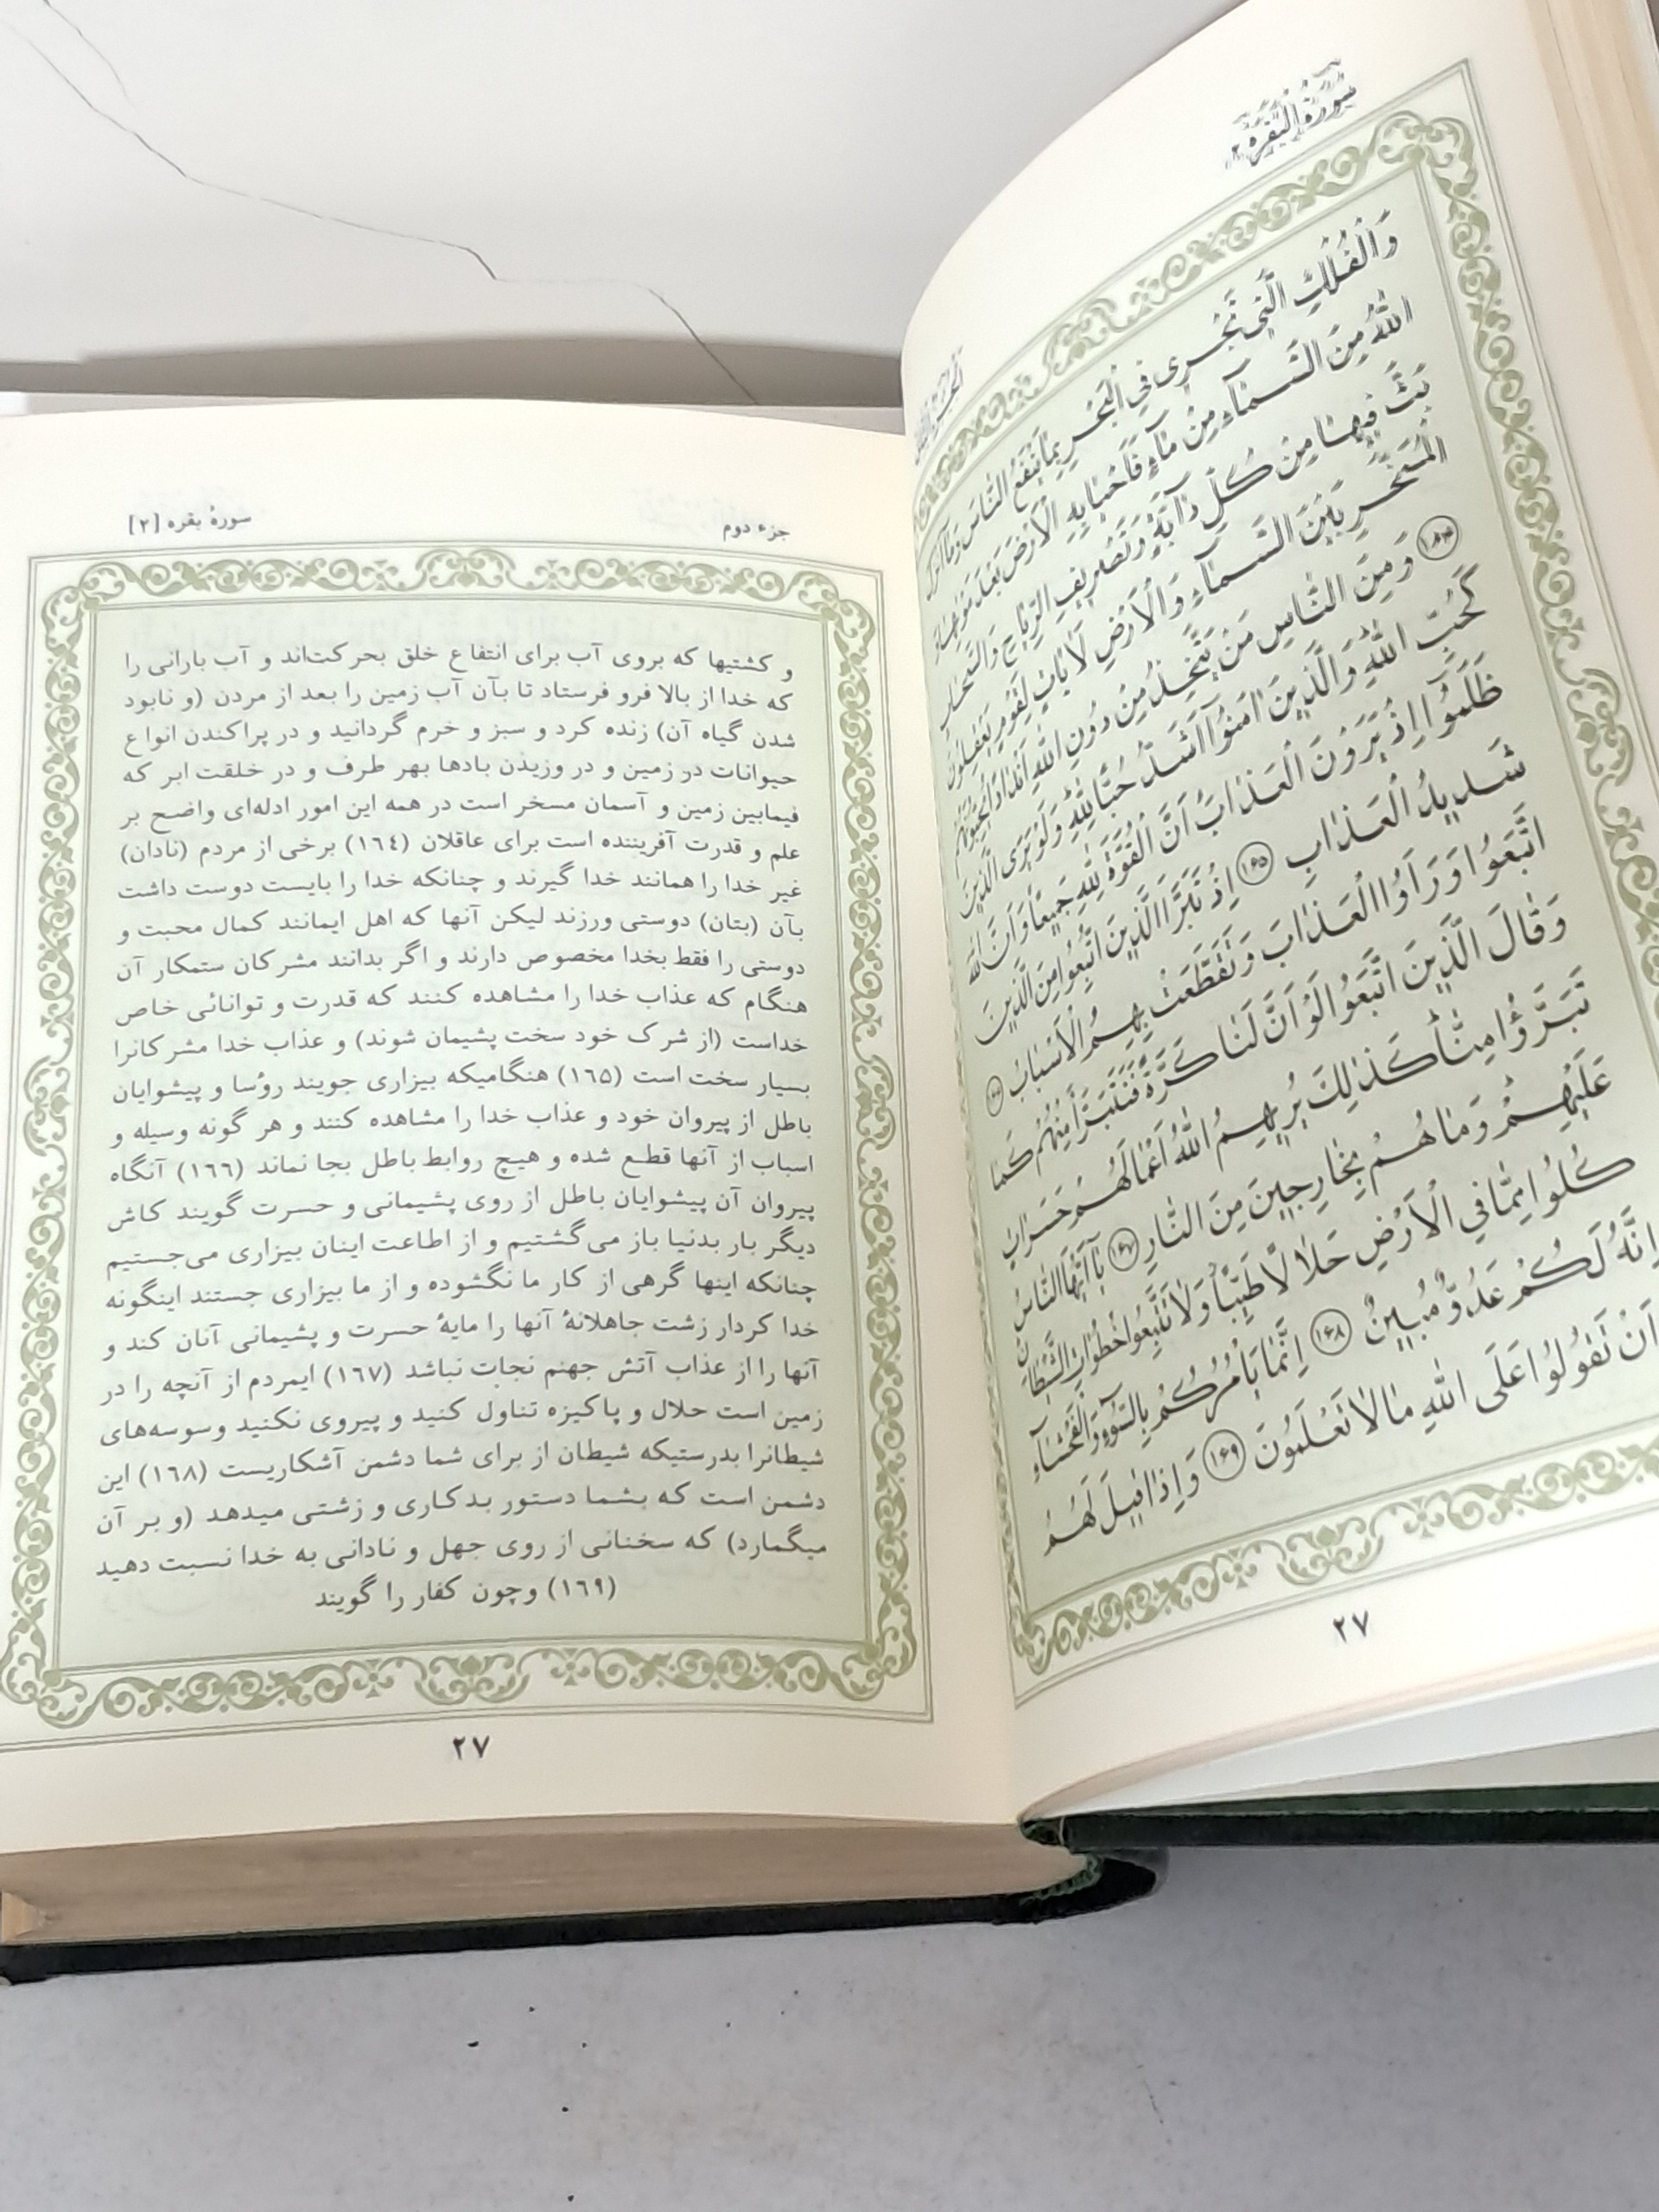 سورة البقرة ٢
وَالْفُلْكِ الَّتي تَجْري فِي الْبَحْرِ بِمَا يَنْفَعُ النَّاسَ وَمَا اَنْزَلَ
اللّٰهُ مِنَ السَّمَاءِ مِنْ مَاءٍ فَاَحْيَا بِهِ الْاَرْضَ بَعْدَ مَوْتِهَا وَ
بَثَّ فيهَا مِنْ كُلِّ دَابَّةٍ وَتَصْريفِ الرِّيَاحِ وَالسَّحَابِ
الْمُسَخَّرِ بَيْنَ السَّمَاءِ وَالْاَرْضِ لَاٰيَاتٍ لِقَوْمٍ يَعْقِلُونَ
١٦٤ وَمِنَ النَّاسِ مَنْ يَتَّخِذُ مِنْ دُونِ اللّٰهِ اَنْدَادًا يُحِبُّونَهُمْ
كَحُبِّ اللّٰهِ وَالَّذينَ اٰمَنُوا اَشَدُّ حُبًّا لِلّٰهِ وَلَوْ يَرَى الَّذينَ
ظَلَمُوا اِذْ يَرَوْنَ الْعَذَابَ اَنَّ الْقُوَّةَ لِلّٰهِ جَميعًا وَاَنَّ اللّٰهَ
شَديدُ الْعَذَابِ ١٦٥ اِذْ تَبَرَّاَ الَّذينَ اتُّبِعُوا مِنَ الَّذينَ
اتَّبَعُوا وَرَاَوُا الْعَذَابَ وَتَقَطَّعَتْ بِهِمُ الْاَسْبَابُ
وَقَالَ الَّذينَ اتَّبَعُوا لَوْ اَنَّ لَنَا كَرَّةً فَنَتَبَرَّاَ مِنْهُمْ كَمَا
تَبَرَّؤُا مِنَّا كَذٰلِكَ يُريهِمُ اللّٰهُ اَعْمَالَهُمْ حَسَرَاتٍ
عَلَيْهِمْ وَمَا هُمْ بِخَارِجينَ مِنَ النَّارِ ١٦٧ يَا اَيُّهَا النَّاسُ
كُلُوا مِمَّا فِي الْاَرْضِ حَلَالًا طَيِّبًا وَلَا تَتَّبِعُوا خُطُوَاتِ الشَّيْطَانِ
اِنَّهُ لَكُمْ عَدُوٌّ مُبينٌ ١٦٨ اِنَّمَا يَاْمُرُكُمْ بِالسُّوءِ وَالْفَحْشَاءِ وَ
اَنْ تَقُولُوا عَلَى اللّٰهِ مَا لَا تَعْلَمُونَ ١٦٩ وَاِذَا قيلَ لَهُمُ
٢٧
جزء دوم
سورهٔ بقره [٢]
و کشتیها که بروی آب برای انتفاع خلق بحرکت‌اند و آب بارانی را
که خدا از بالا فرو فرستاد تا بآن آب زمین را بعد از مردن (و نابود
شدن گیاه آن) زنده کرد و سبز و خرم گردانید و در پراکندن انواع
حیوانات در زمین و در وزیدن بادها بهر طرف و در خلقت ابر که
فیمابین زمین و آسمان مسخر است در همه این امور ادله‌ای واضح بر
علم و قدرت آفریننده است برای عاقلان (١٦٤) برخی از مردم (نادان)
غیر خدا را همانند خدا گیرند و چنانکه خدا را بایست دوست داشت
بآن (بتان) دوستی ورزند لیکن آنها که اهل ایمانند کمال محبت و
دوستی را فقط بخدا مخصوص دارند و اگر بدانند مشرکان ستمکار آن
هنگام که عذاب خدا را مشاهده کنند که قدرت و توانائی خاص
خداست (از شرک خود سخت پشیمان شوند) و عذاب خدا مشرکانرا
بسیار سخت است (١٦٥) هنگامیکه بیزاری جویند رؤسا و پیشوایان
باطل از پیروان خود و عذاب خدا را مشاهده کنند و هر گونه وسیله و
اسباب از آنها قطع شده و هیچ روابط باطل بجا نماند (١٦٦) آنگاه
پیروان آن پیشوایان باطل از روی پشیمانی و حسرت گویند کاش
دیگر بار بدنیا باز می‌گشتیم و از اطاعت اینان بیزاری می‌جستیم
چنانکه اینها گرهی از کار ما نگشوده و از ما بیزاری جستند اینگونه
خدا کردار زشت جاهلانهٔ آنها را مایهٔ حسرت و پشیمانی آنان کند و
آنها را از عذاب آتش جهنم نجات نباشد (١٦٧) ایمردم از آنچه را در
زمین است حلال و پاکیزه تناول کنید و پیروی نکنید وسوسه‌های
شیطانرا بدرستیکه شیطان از برای شما دشمن آشکاریست (١٦٨) این
دشمن است که بشما دستور بدکاری و زشتی میدهد (و بر آن
میگمارد) که سخنانی از روی جهل و نادانی به خدا نسبت دهید
(١٦٩) وچون کفار را گویند
٢٧